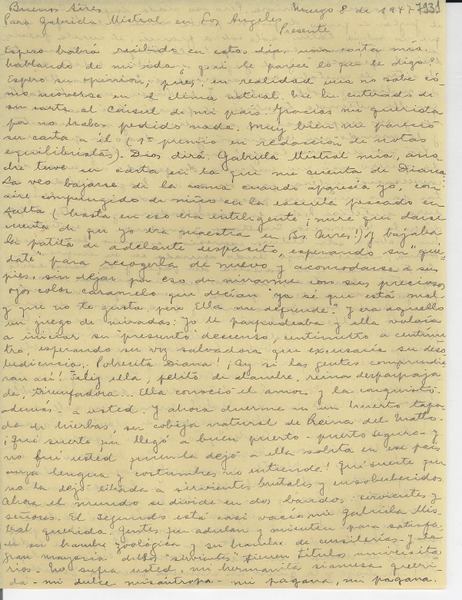 Buenos Aires Mayo 8 de 1947 7331
Para Gabriela Mistral en Los Angeles
Presente
Espero habrá recibido en estos días una carta mía
hablando de mi ida; ¿qué le parece lo que le digo?
Espero su opinión, pues, en realidad una no sabe có-
mo moverse en el clima actual. Me he enterado de
su carta al Cónsul de mi país. Gracias mi querida
por no haber pedido nada. Muy bien me pareció
su carta a él (1er premio en redacción de notas
equilibristas). Dios dirá. Gabriela Mistral mía, ano-
che tuve su carta en la que me cuenta de Diana.
La veo bajarse de la cama cuando aparecía yo, con
aire compungido de niño en la escuela pescado en
falta (hasta en eso era inteligente; mire que darse
cuenta de que yo era maestra en Bs. Aires!) y bajaba
la patita de adelante despacito, esperando su "qué-
date" para recogerla de nuevo y acomodarse a sus
pies, sin dejar por eso de mirarme con sus preciosos
ojos color caramelo que decían "ya sé que está mal
y que no te gusta pero Ella me defiende". Y era aquello
un juego de miradas: yo le parpadeaba y ella volvía
a iniciar su presunto descenso, centímetro a centíme-
tro, esperando su voz salvadora que excusaría su deso-
bediencia. Pobrecita Diana! ¡Ay si las gentes comprendie-
ran así! Feliz ella, pelito de alambre, reina desparpaja-
da, triunfadora... Ella conoció el amor y la conquistó-
demás a usted. Y ahora duerme en un huerto tapa-
da de hierbas, su cobija natural de Reina del Matto.
¡Qué suerte que llegó a buen puerto - puerto seguro - y
no fué usted quien la dejó a ella solita en ese país
cuya lengua y costumbres no entiende! Qué suerte que
no la dejó librada a sirvientes brutales y ensoberbecidos
Ahora el mundo se divide en dos bandos: sirvientes y
señores. El segundo está casi vacío mi Gabriela Mis-
tral querida. Gentes que adulan y mienten para satisfa-
cer su hambre zoológica y su hambre de
gran mayoría de los "sirvientes" tienen títulos universita-
rios. Lo supo usted, mi hermanita siamesa queri-
da - mi dulce misántropa - mi pagana, mi pagana.